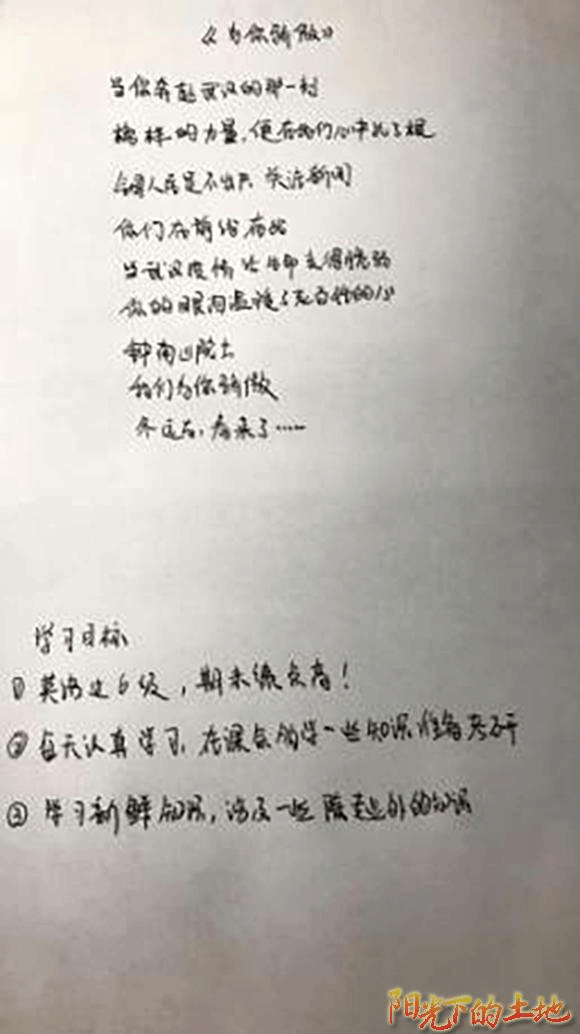 《为你骄傲》
当你奔赴武汉的那一刻
榜样的力量，便在我们心中扎了根
全国人民足不出户 关注新闻
你们在前线奋战
当武汉疫情让生命变得脆弱
你的眼泪温暖了老百姓的心
钟南山院士
我们为你骄傲
冬远去，春来了……
学习目标
① 英语过6级，期末绩点高！
② 每天认真学习，在课余的学一些知识准备考研
③ 学习新鲜知识，涉及一些 专业外的知识
阳光下的土地